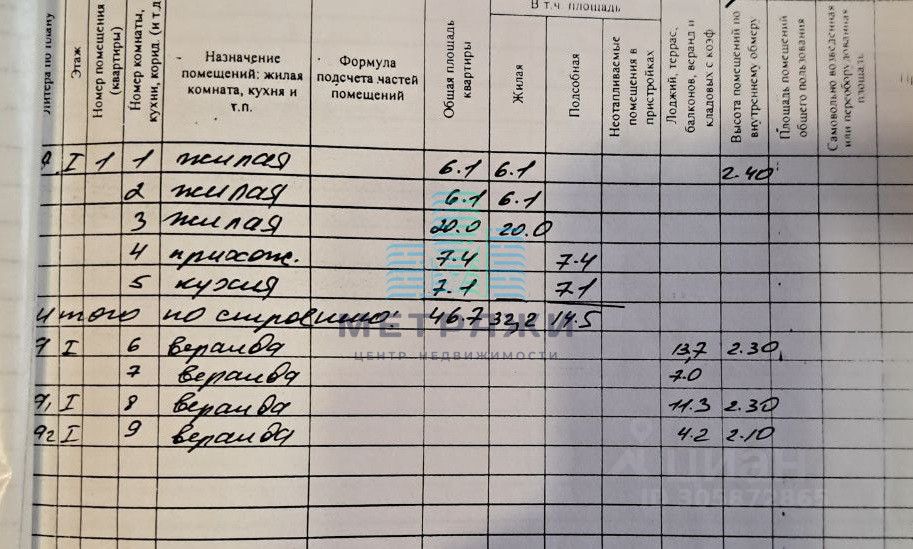 Литера по плану
Этаж
Номер помещения (квартиры)
Номер комнаты, кухни, корид. (и т.д
Назначение помещений: жилая комната, кухня и т.п.
Формула подсчета частей помещений
Общая площадь квартиры
В т.ч. площадь
Жилая
Подсобная
Неотапливаемые помещения в пристройках
Лоджий, террас, балконов, веранд и кладовых с коэф
Высота помещений по внутреннему обмеру
Площадь помещений общего пользования
Самовольно возведенная или переоборудованная площадь
I 1 1 жилая 6.1 6.1 2.40
2 жилая 6.1 6.1
3 жилая 20.0 20.0
4 прихож. 7.4 7.4
5 кухня 7.1 7.1
итого по строению: 46.7 32,2 14.5
I 6 веранда 13,7 2.30
7 веранда 7.0
I 8 веранда 11.3 2.30
I 9 веранда 4.2 2.10
МЕТРАЖИ
ЦЕНТР НЕДВИЖИМОСТИ
циан